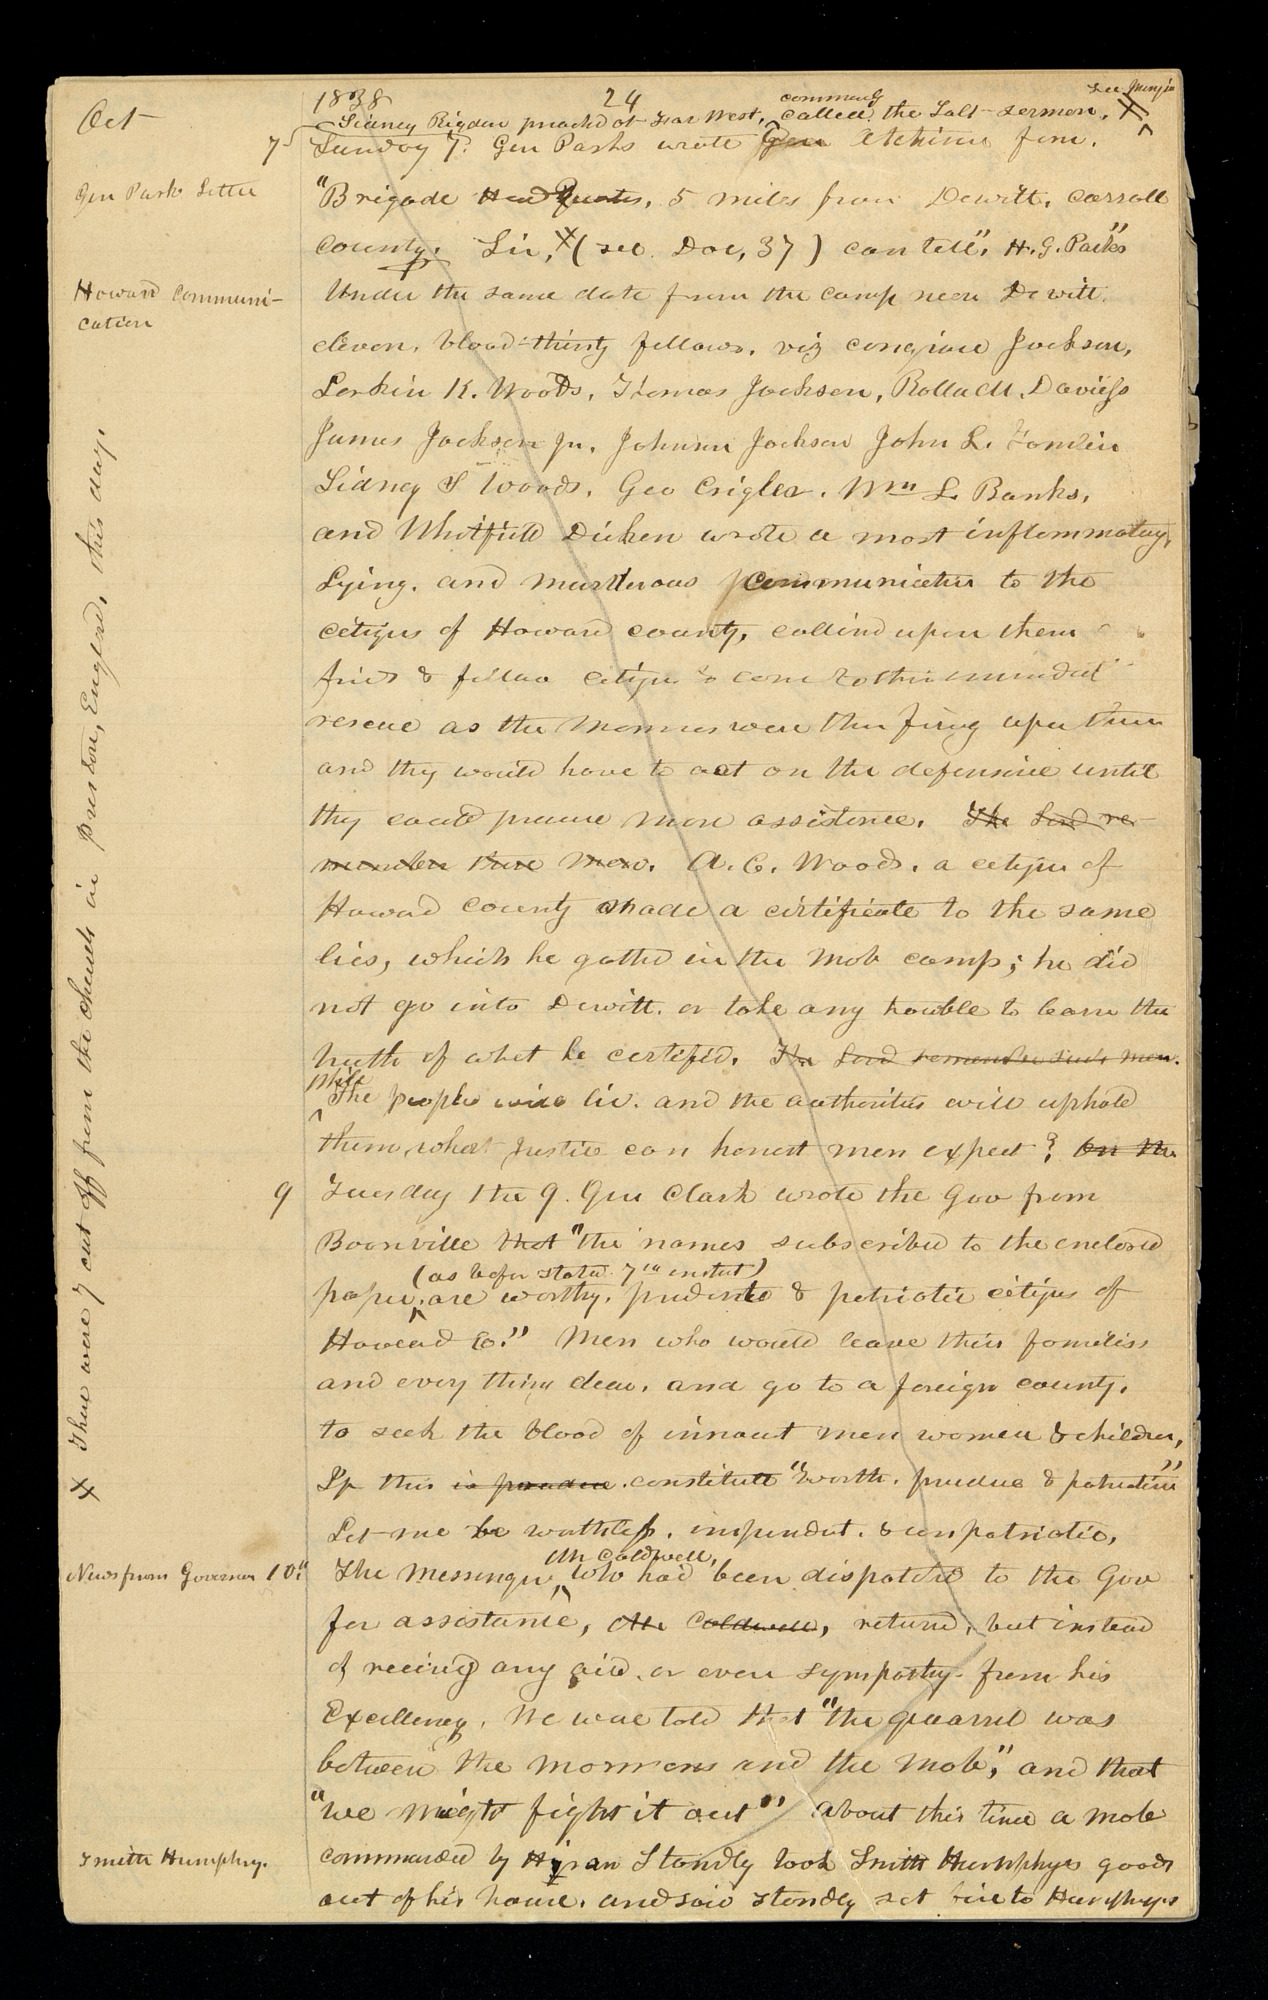 1838 24
see Margin
Oct
commonly
Sidney Rigdon preached at Far West, called the Salt sermon. X
7 Sunday 7. Gen Parks wrote Gen Atchison from.
Gen Park Letter
"Brigade Head Quarters, 5 miles from Dewitt, Carroll
County. Sir, X (see Doc, 37) can tell", H. G. Parks"
Howard communi-
cation
Under the same date from the camp near Dewitt.
eleven, blood-thirsty fellows, viz congrave Jackson,
Larkin K. Woods, Thomas Jackson, Rolla M. Daviess
James Jackson Jr. Johnson Jackson John L. Tomlin
Sidney S Woods, Geo Crigler. Wm L. Banks,
and Whitfield Dicken wrote a most inflammatory,
Lying, and murderous communication to the
citizens of Howard county, calling upon them
frids & fellow citizens to come to their immediate
rescue as the Mormons were then firing upon them
and they would have to act on the defensive until
they could procure more assistance. The Lord re-
member these men. A. C. Woods, a citizen of
Howard county made a certificate to the same
lies, which he gatherd in the mob camp; he did
not go into Dewitt. or take any trouble to learn the
truth of what he certified. The Lord remember such men.
While
The people will lie. and the authorities will uphold
them, what justice can honest men expect? On the
9 Tuesday the 9. Gen Clark wrote the Gov from
Boonville that "the names subscribed to the enclosed
(as befor stated 7th instant)
paper, are worthy, prudent & patriotic citizens of
Howard Co." Men who would leave their families
and every thing dear, and go to a foreign county,
to seek the blood of innocent men women & children,
If this is constitute "worth, prudence & patriotism"
Let me be worthless, imprudent, & unpatriotic,
Mr Caldwell,
News from Governor 10" The messenger, who had been dispatched to the Gov
for assistance, Mr Caldwell, returned, but instead
of receiving any aid. or even sympathy from his
Excellency. We were told that "the quarrel was
between the mormons and the mob," and that
"we might fight it out" About this time a mob
Smith Humphry.
commanded by Hyran Standly took Smith Humphrys goods
out of his house, and said Standly set fire to Humphrys
X There were 7 cut off from the church in Preston, England, this day.